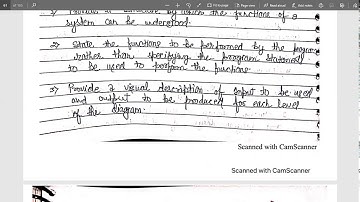 system can be understood.
2) State the functions to be performed by the program
rather than specifying the program statements
to be used to perform the functions
3) Provide a visual description of input to be used
and output to be produced for each level
of the diagram.
Scanned with CamScanner
Scanned with CamScanner